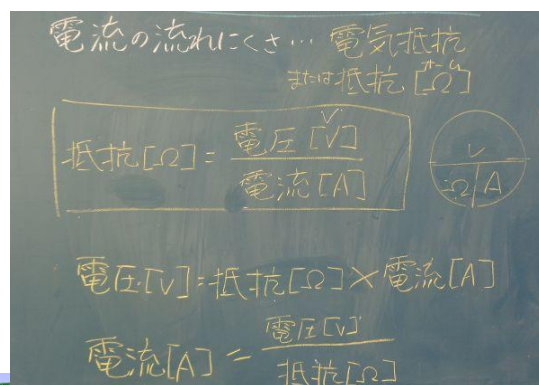 電流の流れにくさ… 電気抵抗
または抵抗[Ω]
オーム
抵抗[Ω]=電圧[V]/電流[A]
V
V
Ω|A
電圧[V]=抵抗[Ω]×電流[A]
電流[A]=電圧[V]/抵抗[Ω]